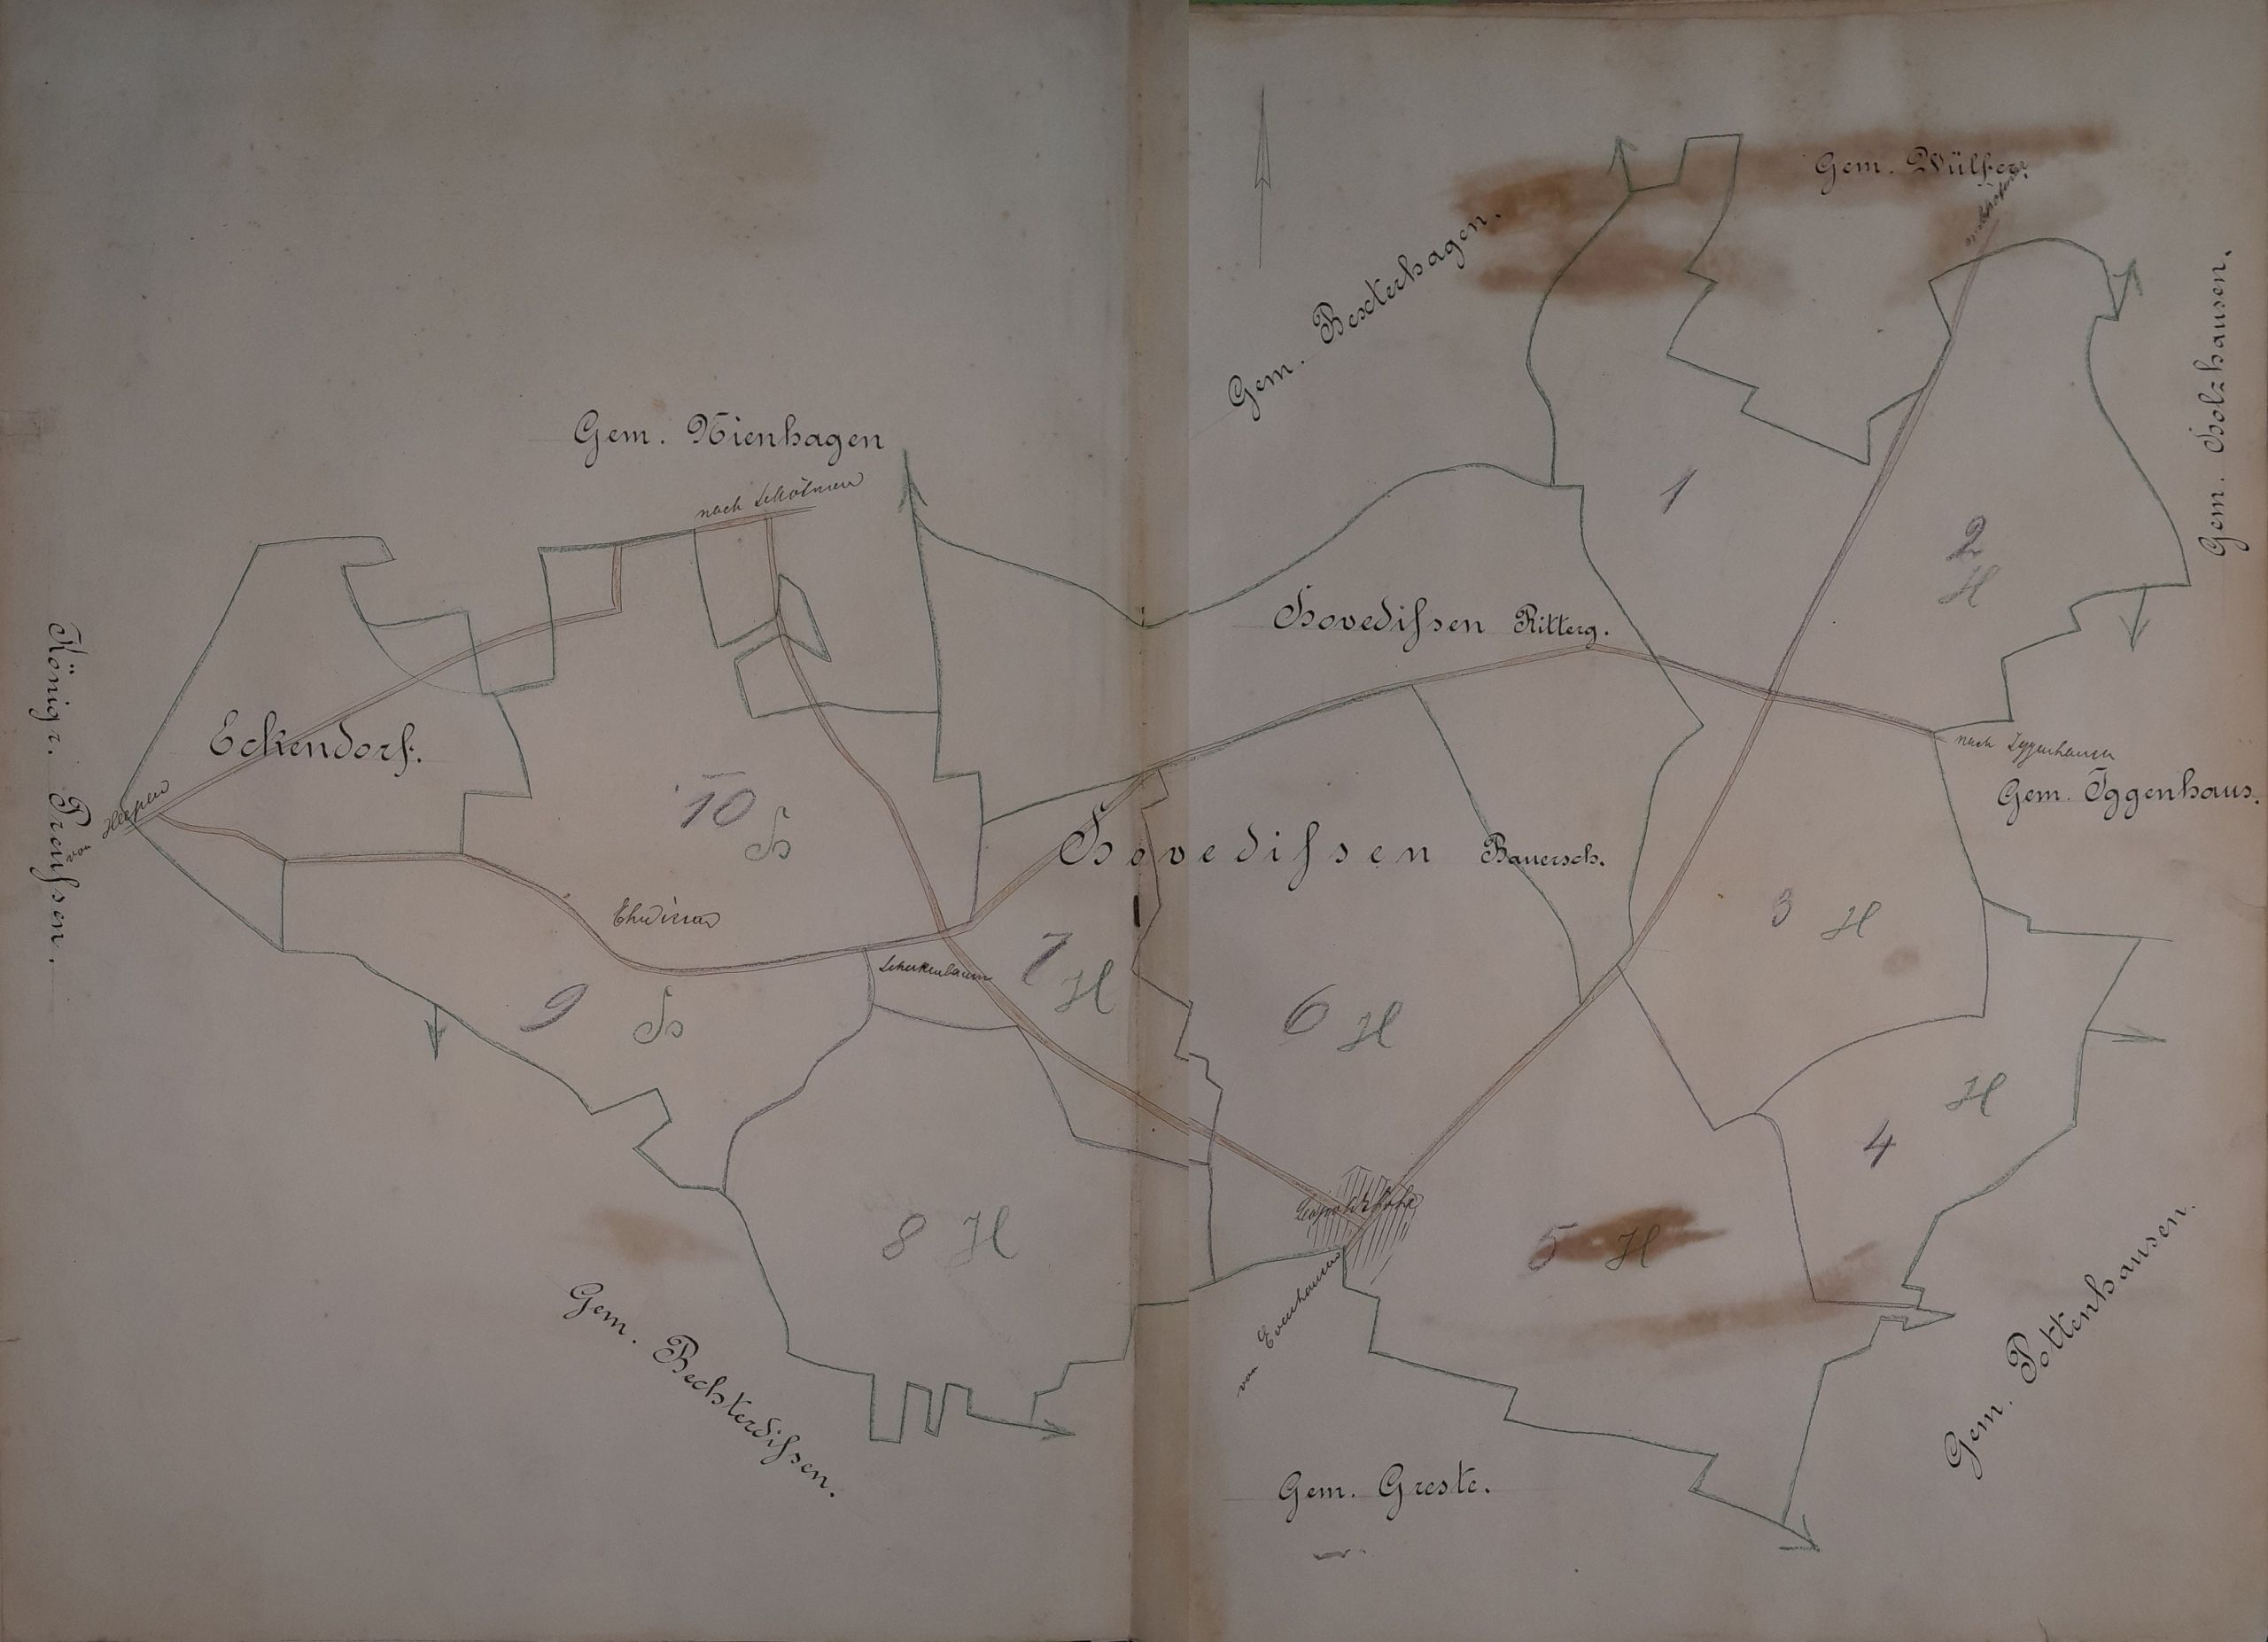 Gem. Wülfer.
Gem. Bexterhagen.
Gem. Holzhausen.
Gem. Nienhagen
nach Schötmar
1
2
H
Hovediſsen Ritterg.
Königr. Preuſsen.
Eckendorf.
von Heepen
nach Iggenhausen
Gem. Iggenhaus.
10
H
Hovediſsen Bauersch.
3 H
Schuckenbaum
7
H
9
H
6 H
H
4
Leopoldshöhe
8 H
5 H
von Evenhausen
Gem. Bechterdiſsen.
Gem. Pottenhausen.
Gem. Greste.